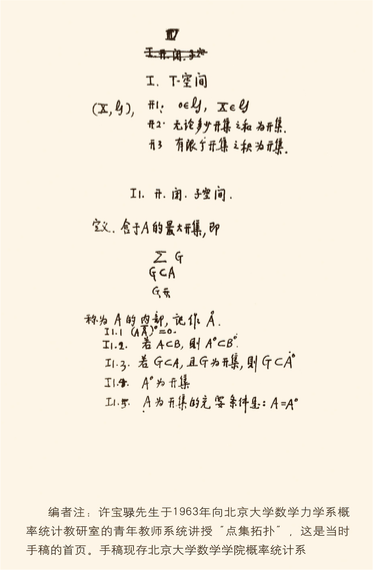 I. T-空间
(X, 𝒢), 开1: 0∈𝒢, X∈𝒢
开2: 无论多少开集之和为开集.
开3 有限个开集之积为开集.
II. 开. 闭. 子空间.
定义. 含于A的最大开集, 即
∑ G
G⊂A
G开
称为 A 的内部, 记作 Å.
II.1 (AĀ)°=0.
II.2. 若 A⊂B, 则 A°⊂B°.
II.3. 若 G⊂A, 且G为开集, 则 G⊂A°
II.4. A°为开集
II.5. A为开集的充要条件是: A=A°
编者注：许宝騄先生于1963年向北京大学数学力学系概
率统计教研室的青年教师系统讲授“点集拓扑”，这是当时
手稿的首页。手稿现存北京大学数学学院概率统计系